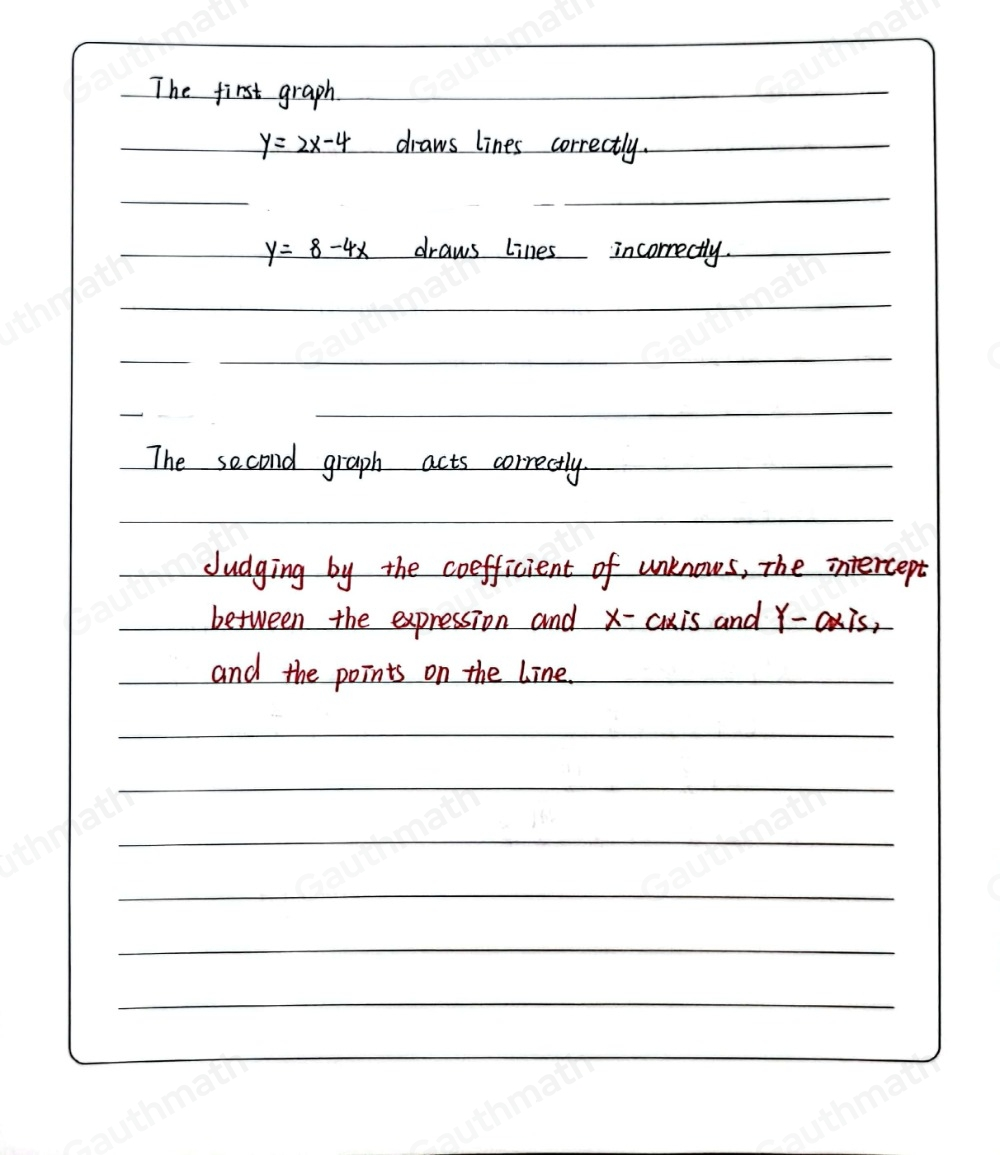 The first graph.
y = 2x-4 draws lines correctly.
y = 8-4x draws lines incorrectly.
The second graph acts correctly.
Judging by the coefficient of unknows, The intercept
between the expression and X-axis and Y-axis,
and the points on the line.
Gauthmath